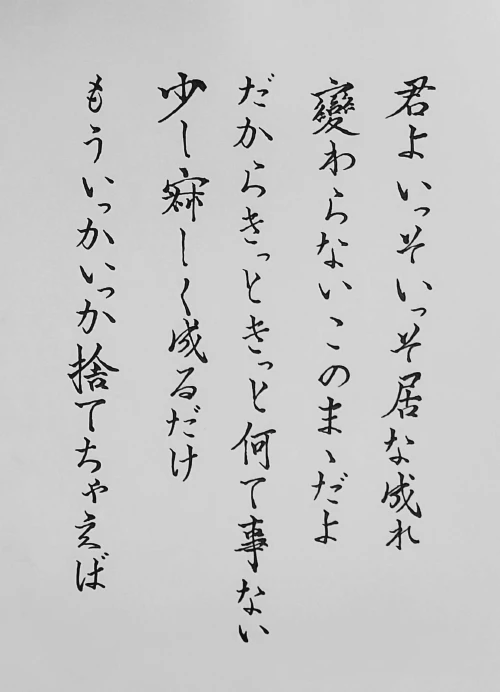 君よいっそいっそ居な成れ
變わらないこのまゝだよ
だからきっときっと何て事ない
少し寂しく成るだけ
もういっかいっか捨てちゃえば